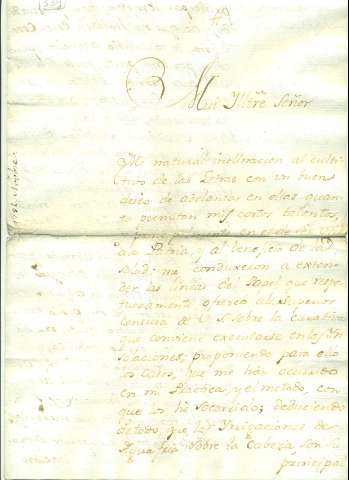 Mui Yltre Señor
Mi natural inclinacion al culti
tivo de las Letras con un buen
deseo de adelantar en ellas quan
to permitan mis cortos talentos,
a la Patria, y al bene, cio de la
salud; me conduxeron a exten
der las lineas del Papel que respe
tuosamente ofrezco al Superior
Censura de V. S. sobre la curativa
que conviene executarse en las Yn
solaciones; proponiendo para ello
los casos, que me han ocurrido
en mi Practica, y el metodo, con
que los he socorrido; deduciendo
de todo, que las Yrrigaciones de
Agua fria sobre la Cabeza, son su
principal